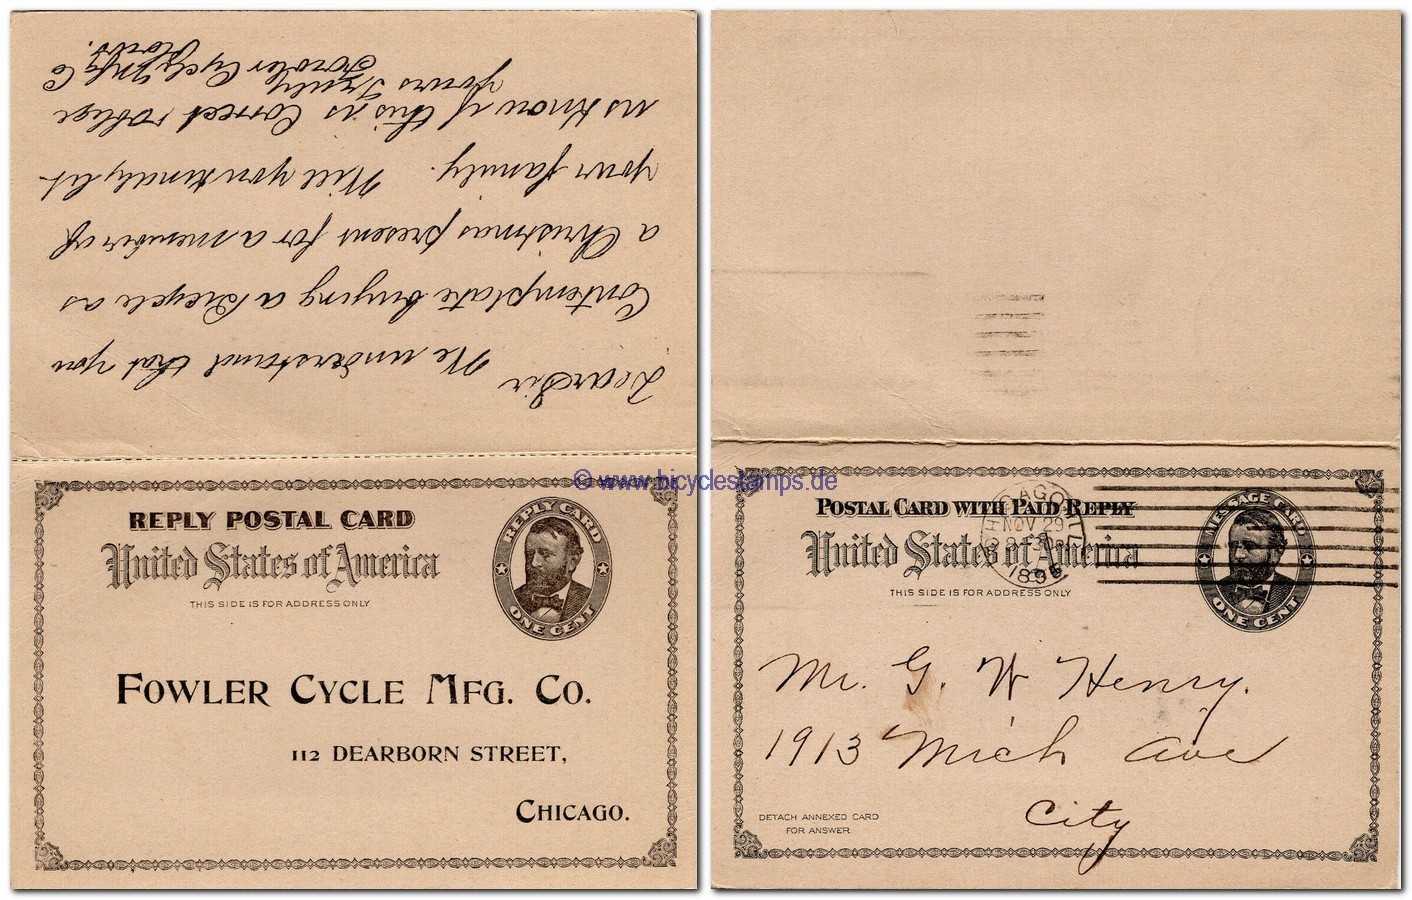 Dear Sir
We understand that you
Contemplate buying a Bicycle as
a Christmas present for a member of
your family. Will you kindly let
us know if this is Correct & oblige
Yours Truly
Fowler Cycle Mfg Co
REPLY POSTAL CARD
United States of America
THIS SIDE IS FOR ADDRESS ONLY
REPLY CARD
ONE CENT
FOWLER CYCLE MFG. CO.
112 DEARBORN STREET,
CHICAGO.
© www.bicyclestamps.de
POSTAL CARD WITH PAID REPLY
United States of America
THIS SIDE IS FOR ADDRESS ONLY
MESSAGE CARD
ONE CENT
CHICAGO, ILL.
NOV 29
Mr. G. W Henry.
1913 Mich Ave
City
DETACH ANNEXED CARD
FOR ANSWER